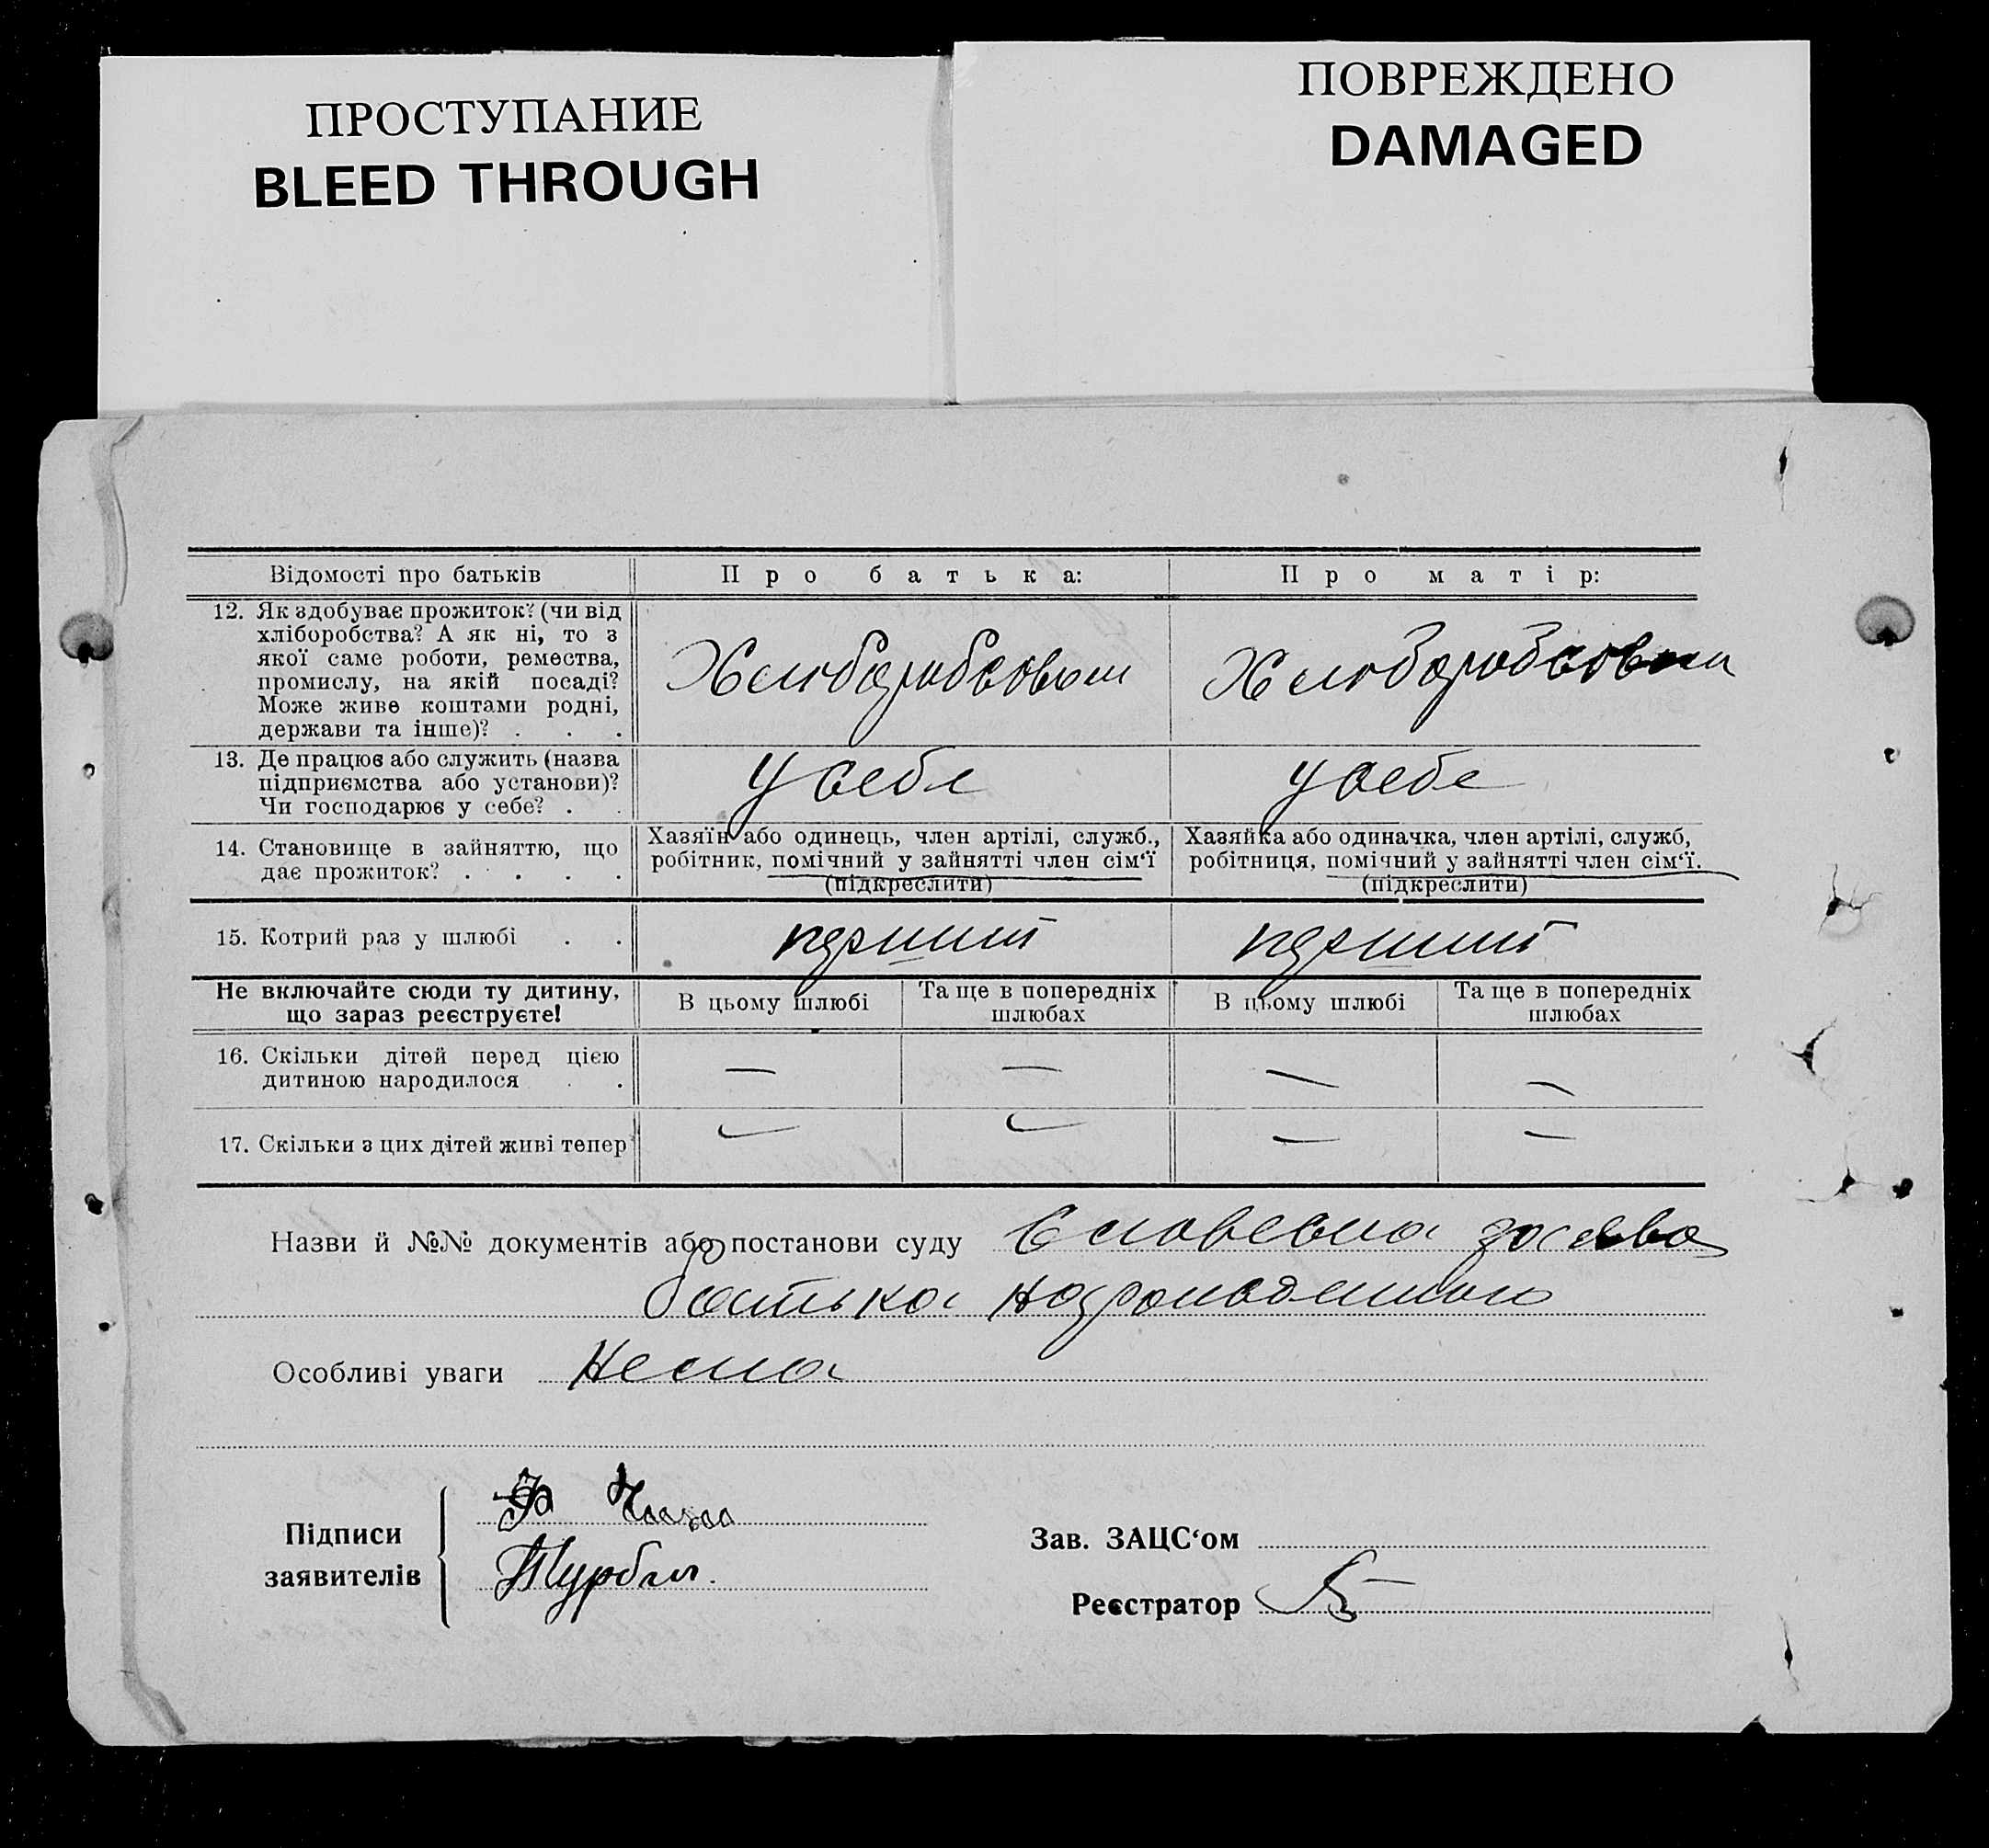 ПРОСТУПАНИЕ
BLEED THROUGH
ПОВРЕЖДЕНО
DAMAGED
Відомості про батьків
Про батька:
Про матір:
12. Як здобуває прожиток? (чи від
хліборобства? А як ні, то з
якої саме роботи, ремества,
промислу, на якій посаді?
Може живе коштами родні,
держави та інше)? . . .
13. Де працює або служить (назва
підприємства або установи)?
Чи господарює у себе? . .
У себе
у себе
14. Становище в зайняттю, що
дає прожиток? . . . .
Хазяїн або одинець, член артілі, служб.,
робітник, помічний у зайнятті член сім'ї
(підкреслити)
Хазяйка або одиначка, член артілі, служб,
робітниця, помічний у зайнятті член сім'ї.
(підкреслити)
15. Котрий раз у шлюбі . .
перший
перший
Не включайте сюди ту дитину,
що зараз реєструєте!
В цьому шлюбі
Та ще в попередніх
шлюбах
В цьому шлюбі
Та ще в попередніх
шлюбах
16. Скільки дітей перед цією
дитиною народилося . .
— — — —
17. Скільки з цих дітей живі тепер
— — — —
Назви й №№ документів або постанови суду Словесна заява
батька
Особливі уваги Нема
Підписи
заявителів
Зав. ЗАЦС'ом
Реєстратор